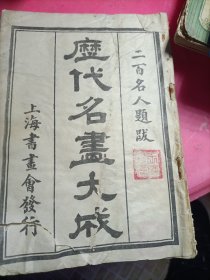 二百名人題跋
歷代名畫大成
上海書畫會發行